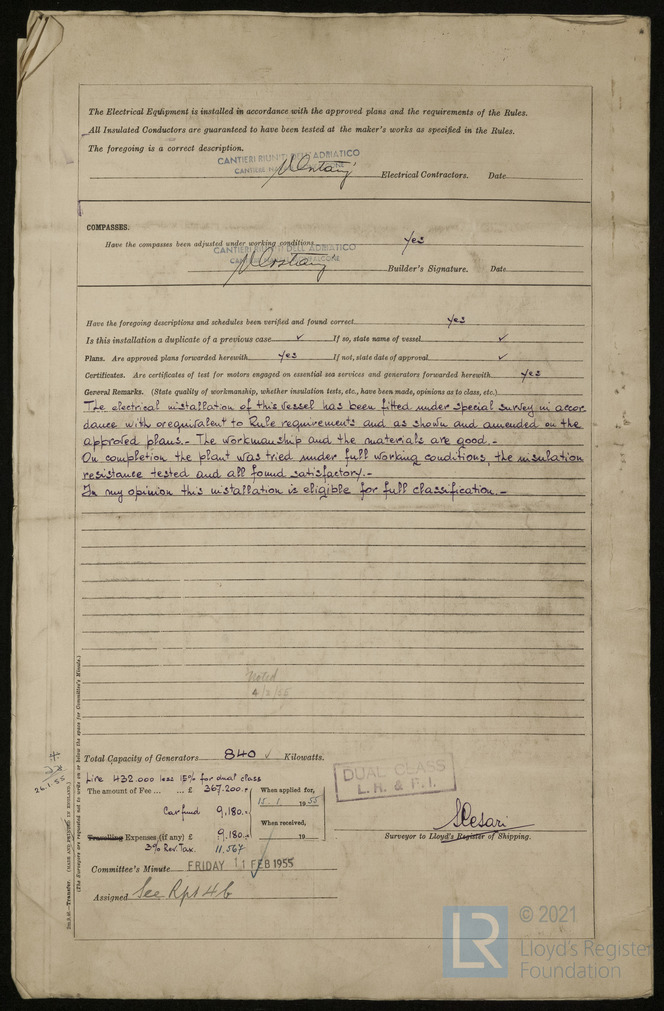 The Electrical Equipment is installed in accordance with the approved plans and the requirements of the Rules.
All Insulated Conductors are guaranteed to have been tested at the maker's works as specified in the Rules.
The foregoing is a correct description.
CANTIERI RIUNITI DELL'ADRIATICO
Electrical Contractors. Date
COMPASSES.
Have the compasses been adjusted under working conditions Yes
CANTIERI RIUNITI DELL'ADRIATICO
Builder's Signature. Date
Have the foregoing descriptions and schedules been verified and found correct Yes
Is this installation a duplicate of a previous case ✓ If so, state name of vessel ✓
Plans. Are approved plans forwarded herewith Yes If not, state date of approval ✓
Certificates. Are certificates of test for motors engaged on essential sea services and generators forwarded herewith Yes
General Remarks. (State quality of workmanship, whether insulation tests, etc., have been made, opinions as to class, etc.)
The electrical installation of this vessel has been fitted under special survey in accor
dance with or equivalent to Rule requirements and as shown and amended on the
approved plans.- The workmanship and the materials are good.-
On completion the plant was tried under full working conditions, the insulation
resistance tested and all found satisfactory.-
In my opinion this installation is eligible for full classification.-
Noted
4/2/55
Total Capacity of Generators 840 ✓ Kilowatts.
Lire 432.000 less 15% for dual class
The amount of Fee ... ... £ 367.200.- When applied for,
15.1. 1955
Car fund 9,180.-
When received,
Travelling Expenses (if any) £ 9,180.- 19
3% Rev. Tax. 11,567
DUAL CLASS
L.R. & R.I.
S Cesari
Surveyor to Lloyd's Register of Shipping.
Committee's Minute FRIDAY 11 FEB 1955
Assigned See Rpt 4b
26.1.55
Transfer. (MADE AND PRINTED IN ENGLAND.)
(The Surveyors are requested not to write on or below the space for Committee's Minute.)
© 2021
LR
Lloyd's Register
Foundation